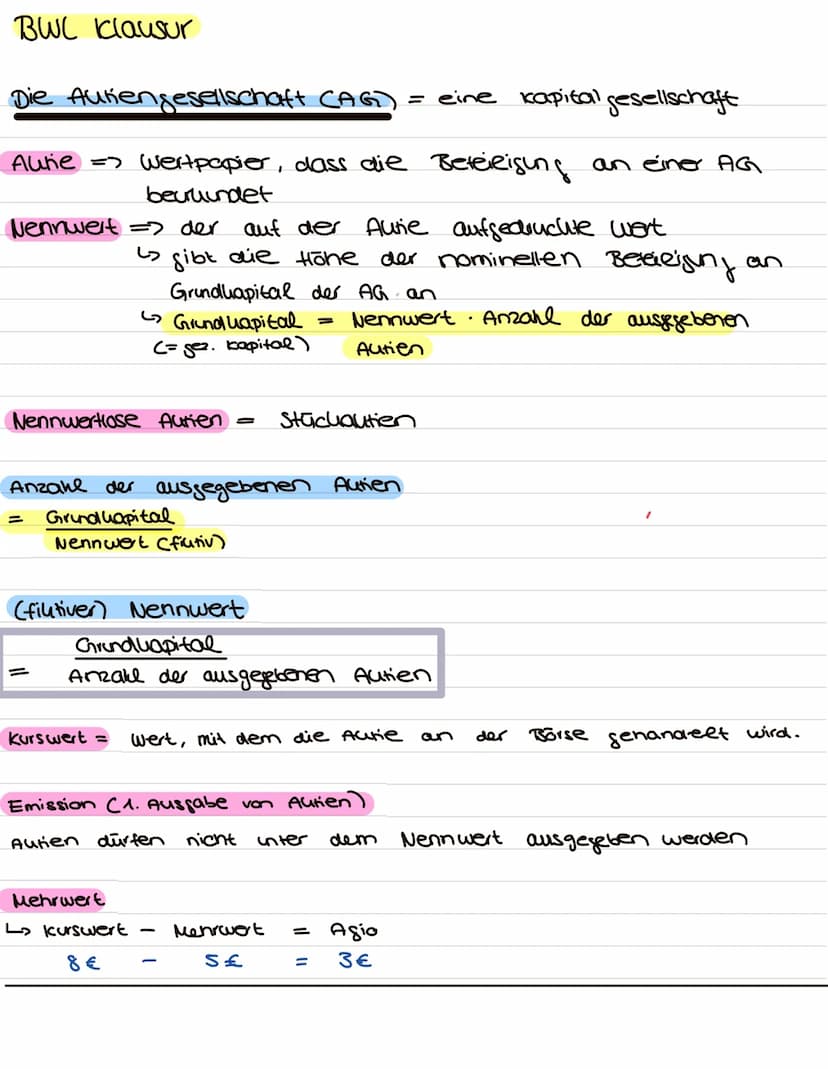 BWL Klausur
Die Aktiengesellschaft (AG) = eine Kapitalgesellschaft
Aktie => Wertpapier, dass die Beteiligung an einer AG
beurkundet
Nennwert => der auf der Aktie aufgedruckte Wert
↳ gibt die Höhe der nominellen Beteiligung an
Grundkapital der AG an
↳ Grundkapital = Nennwert · Anzahl der ausgegebenen
(= gez. Kapital) Aktien
Nennwertlose Aktien = Stückaktien
Anzahl der ausgegebenen Aktien
= Grundkapital
Nennwert (fiktiv)
(fiktiver) Nennwert
Grundkapital
= Anzahl der ausgegebenen Aktien
Kurswert = Wert, mit dem die Aktie an der Börse gehandelt wird.
Emission (1. Ausgabe von Aktien)
Aktien dürfen nicht unter dem Nennwert ausgegeben werden
Mehrwert
↳ Kurswert - Mehrwert = Agio
8€ - 5£ = 3€